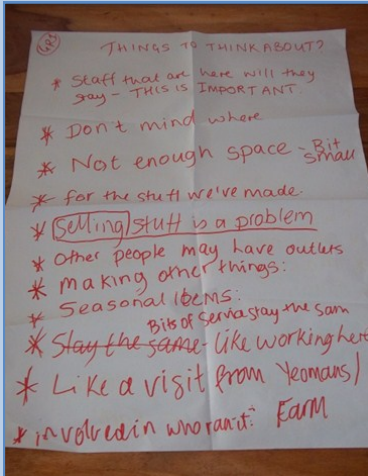 GP2
THINGS TO THINK ABOUT?
* Staff that are here will they
stay - THIS IS IMPORTANT.
* Don't mind where
* Not enough space - Bit
small
* for the stuff we've made.
* Selling stuff is a problem
* Other people may have outlets
* making other things:
* Seasonal Items:
Bits of service stay the sam
* Stay the same - like working here
* Like a visit from Yeomans /
* involved in who ran it? Earm